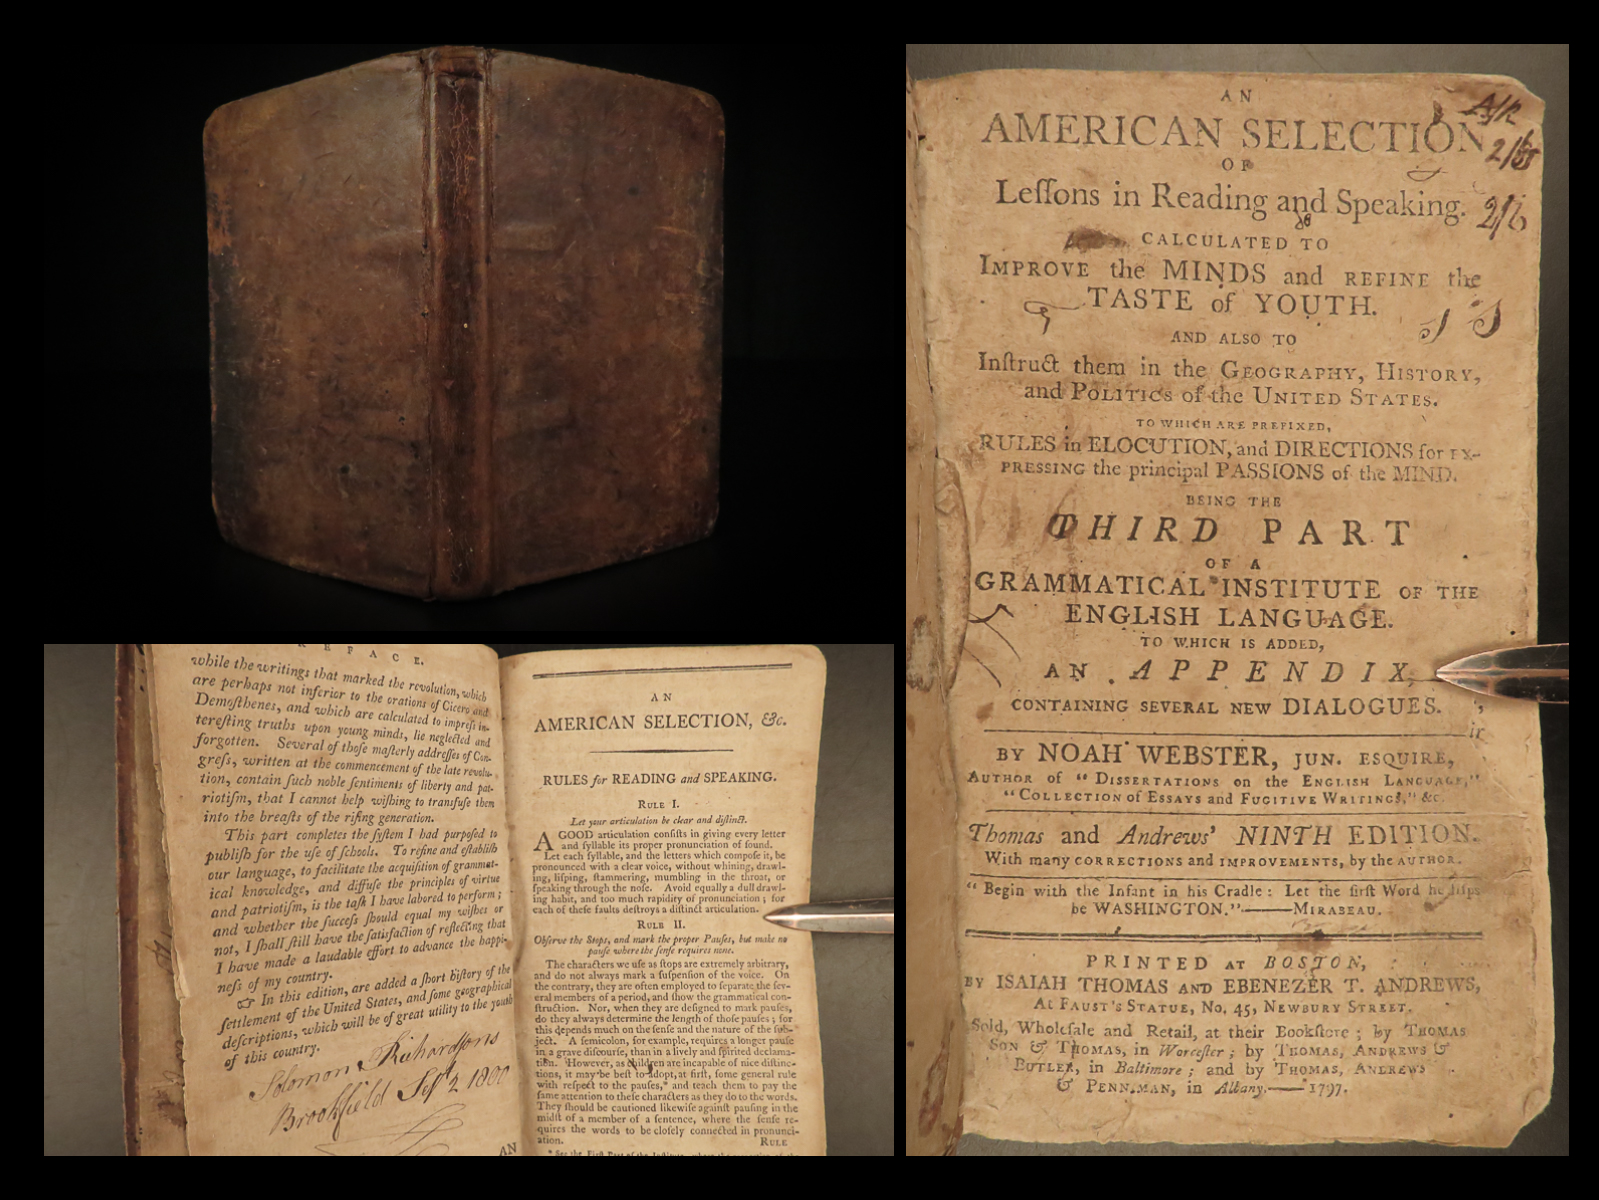 REFACE.
while the writings that marked the revolution, which
are perhaps not inferior to the orations of Cicero and
Demoſthenes, and which are calculated to impreſs in-
tereſting truths upon young minds, lie neglected and
forgotten. Several of thoſe maſterly addreſſes of Con-
greſs, written at the commencement of the late revolu-
tion, contain ſuch noble ſentiments of liberty and pat-
riotiſm, that I cannot help wiſhing to transfuſe them
into the breaſts of the riſing generation.
This part completes the ſyſtem I had purpoſed to
publiſh for the uſe of ſchools. To refine and eſtabliſh
our language, to facilitate the acquiſition of grammat-
ical knowledge, and diffuſe the principles of virtue
and patriotiſm, is the taſk I have labored to perform ;
and whether the ſucceſs ſhould equal my wiſhes or
not, I ſhall ſtill have the ſatisfaction of reflecting that
I have made a laudable effort to advance the happi-
neſs of my country.
☞ In this edition, are added a ſhort hiſtory of the
ſettlement of the United States, and ſome geographical
deſcriptions, which will be of great utility to the youth
of this country.
Solomon Richardsons
Brookfield Sept 2 1800
AN
AN
AMERICAN SELECTION, &c.
RULES for READING and SPEAKING.
RULE I.
Let your articulation be clear and diſtinct.
A GOOD articulation conſiſts in giving every letter
and ſyllable its proper pronunciation of ſound.
Let each ſyllable, and the letters which compoſe it, be
pronounced with a clear voice, without whining, drawl-
ing, liſping, ſtammering, mumbling in the throat, or
ſpeaking through the noſe. Avoid equally a dull drawl-
ing habit, and too much rapidity of pronunciation ; for
each of theſe faults deſtroys a diſtinct articulation.
RULE II.
Obſerve the Stops, and mark the proper Pauſes, but make no
pauſe where the ſenſe requires none.
The characters we uſe as ſtops are extremely arbitrary,
and do not always mark a ſuſpenſion of the voice. On
the contrary, they are often employed to ſeparate the ſev-
eral members of a period, and ſhow the grammatical con-
ſtruction. Nor, when they are deſigned to mark pauſes,
do they always determine the length of thoſe pauſes ; for
this depends much on the ſenſe and the nature of the ſub-
ject. A ſemicolon, for example, requires a longer pauſe
in a grave diſcourſe, than in a lively and ſpirited declama-
tion. However, as children are incapable of nice diſtinc-
tions, it may be beſt to adopt, at firſt, ſome general rule
with reſpect to the pauſes,* and teach them to pay the
ſame attention to theſe characters as they do to the words.
They ſhould be cautioned likewiſe againſt pauſing in the
midſt of a member of a ſentence, where the ſenſe re-
quires the words to be cloſely connected in pronunci-
ation. RULE
* See the Firſt Part of the Inſtitute,
AN
AMERICAN SELECTION
OF
Leſſons in Reading and Speaking.
2/6
CALCULATED TO
IMPROVE the MINDS and REFINE the
TASTE of YOUTH.
AND ALSO TO
Inſtruct them in the GEOGRAPHY, HISTORY,
and POLITICS of the UNITED STATES.
TO WHICH ARE PREFIXED,
RULES in ELOCUTION, and DIRECTIONS for EX-
PRESSING the principal PASSIONS of the MIND.
BEING THE
THIRD PART
OF A
GRAMMATICAL INSTITUTE OF THE
ENGLISH LANGUAGE.
TO WHICH IS ADDED,
AN APPENDIX,
CONTAINING SEVERAL NEW DIALOGUES.
BY NOAH WEBSTER, JUN. ESQUIRE,
AUTHOR OF "DISSERTATIONS on the ENGLISH LANGUAGE,"
"COLLECTION of ESSAYS and FUGITIVE WRITINGS," &c.
Thomas and Andrews' NINTH EDITION.
With many CORRECTIONS and IMPROVEMENTS, by the AUTHOR.
"Begin with the Infant in his Cradle : Let the firſt Word he liſps
be WASHINGTON."——MIRABEAU.
PRINTED AT BOSTON,
BY ISAIAH THOMAS AND EBENEZER T. ANDREWS,
At FAUST'S STATUE, No. 45, NEWBURY STREET.
Sold, Wholeſale and Retail, at their Bookſtore ; by THOMAS
SON & THOMAS, in Worceſter ; by THOMAS, ANDREWS &
BUTLER, in Baltimore ; and by THOMAS, ANDREWS
& PENNIMAN, in Albany.——1797.